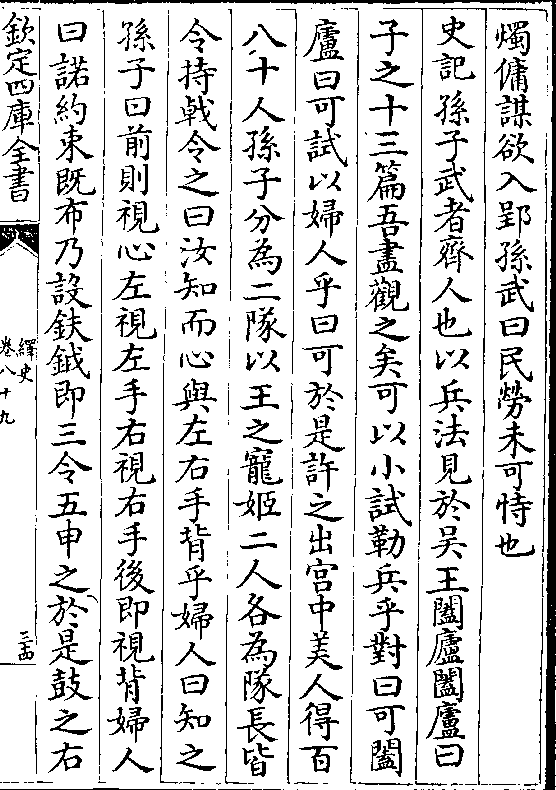 燭傭謀欲入郢孫武曰民勞未可恃也
史記孫子武者齊人也以兵法見於吴王闔廬闔廬曰
子之十三篇吾盡觀之矣可以小試勒兵乎對曰可闔
廬曰可試以婦人乎曰可於是許之出宫中美人得百
八十人孫子分為二隊以王之寵姬二人各為隊長皆
令持戟令之曰汝知而心與左右手背乎婦人曰知之
孫子曰前則視心左視左手右視右手後即視背婦人
曰諾約束既布乃設鈇鉞即三令五申之於是鼓之右
欽定四庫全書
繹史
卷八十九